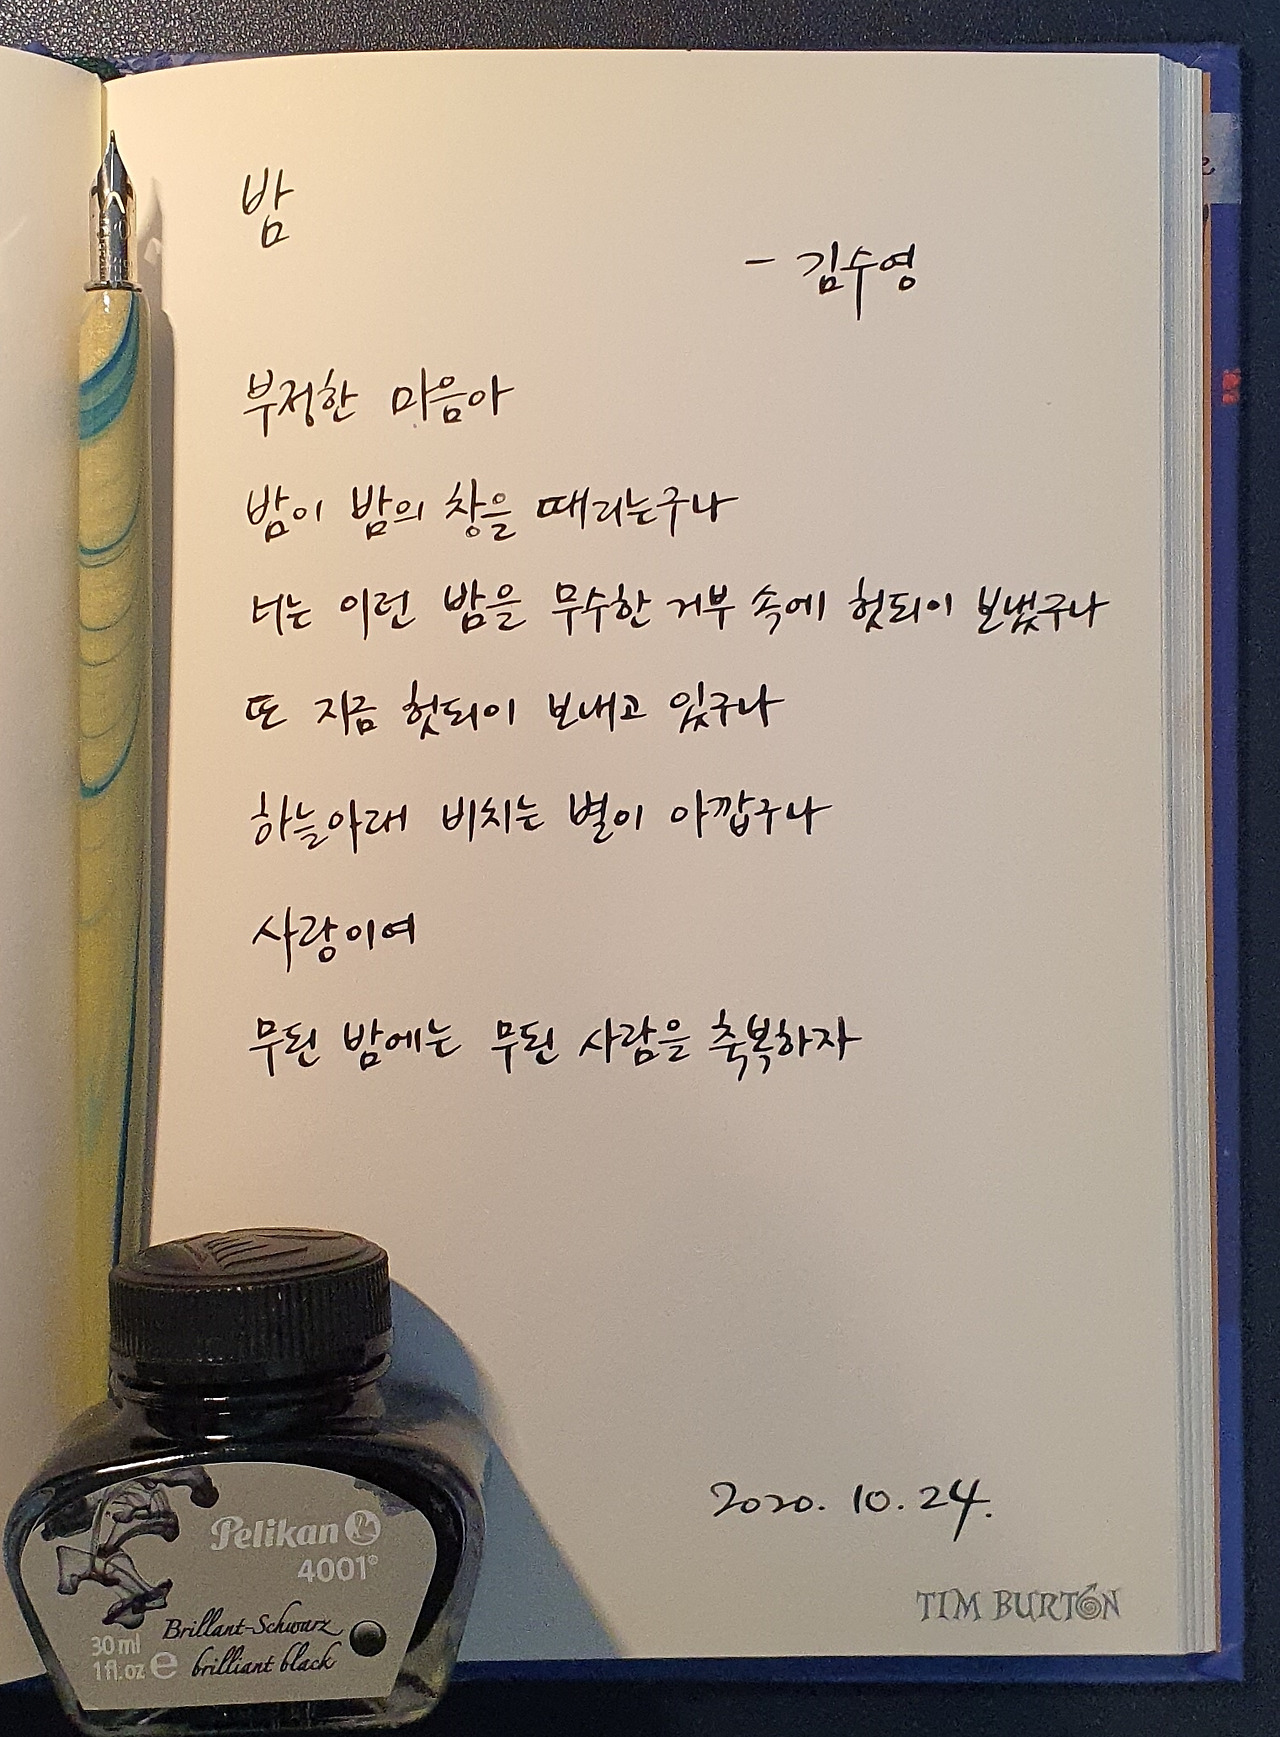 밤
- 김수영
부정한 마음아
밤이 밤의 창을 때리는구나
너는 이런 밤을 무수한 거부 속에 헛되이 보냈구나
또 지금 헛되이 보내고 있구나
하늘아래 비치는 별이 아깝구나
사랑이여
무된 밤에는 무된 사람을 축복하자
2020. 10. 24.
TIM BURTON
Pelikan
4001®
Brillant-Schwarz
brilliant black
30 ml
1 fl.oz e